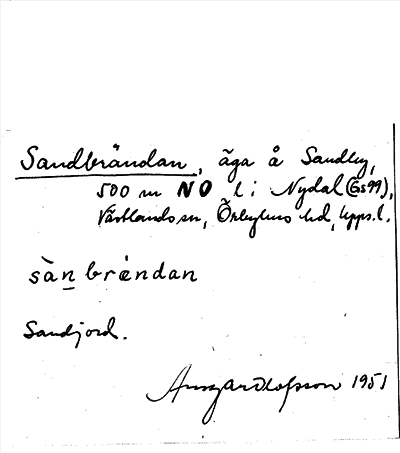 Sandbrändan, äga å Sandby,
500 m NO l; Nydal (Gs99),
Västlands sn, Örbyhus hd, Upps. l.
sàn brèndan
Sandjord.
Ansgar Olofsson 1951